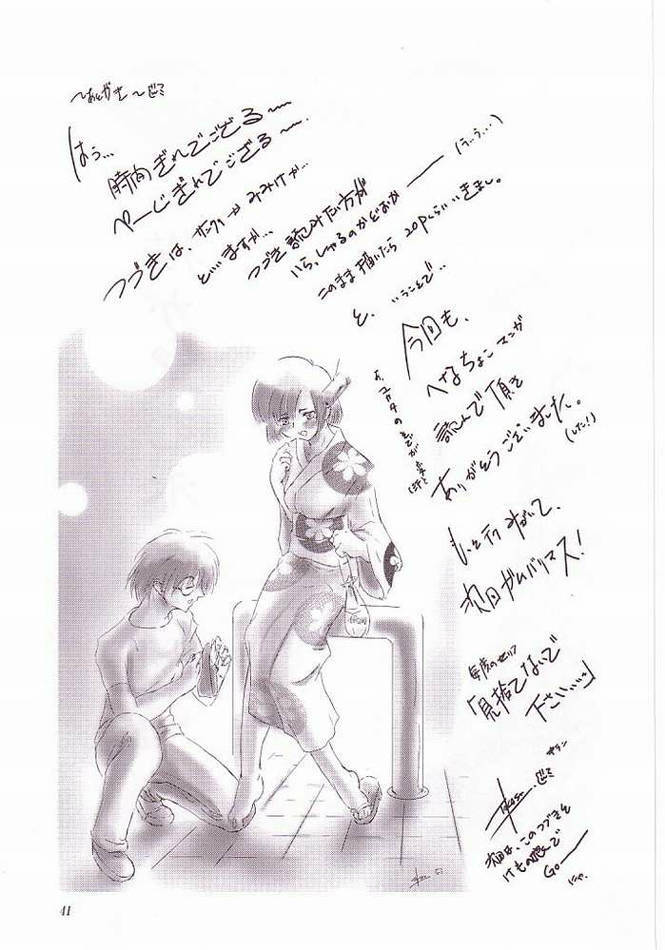 〜あとがき〜
はぅ…
時間ぎれでござる〜
ぺーじぎれでござる〜
つづきは、サンクリかみみけか…
と…ますが…
つづき読みたい方が
いらっしゃるのかどおか――(う…う…)
このまま描いたら20Pくらいいきまし。
と、いうことで…
今回も、
へなちょこマンガ
読んで頂き
ありがとうございました。
(した!)
次回ガムバリマス!
毎度のセリフ
「見捨てないで
下さい…」
次回は、このつづきと
けもの娘で
GO――
にゃ。
41